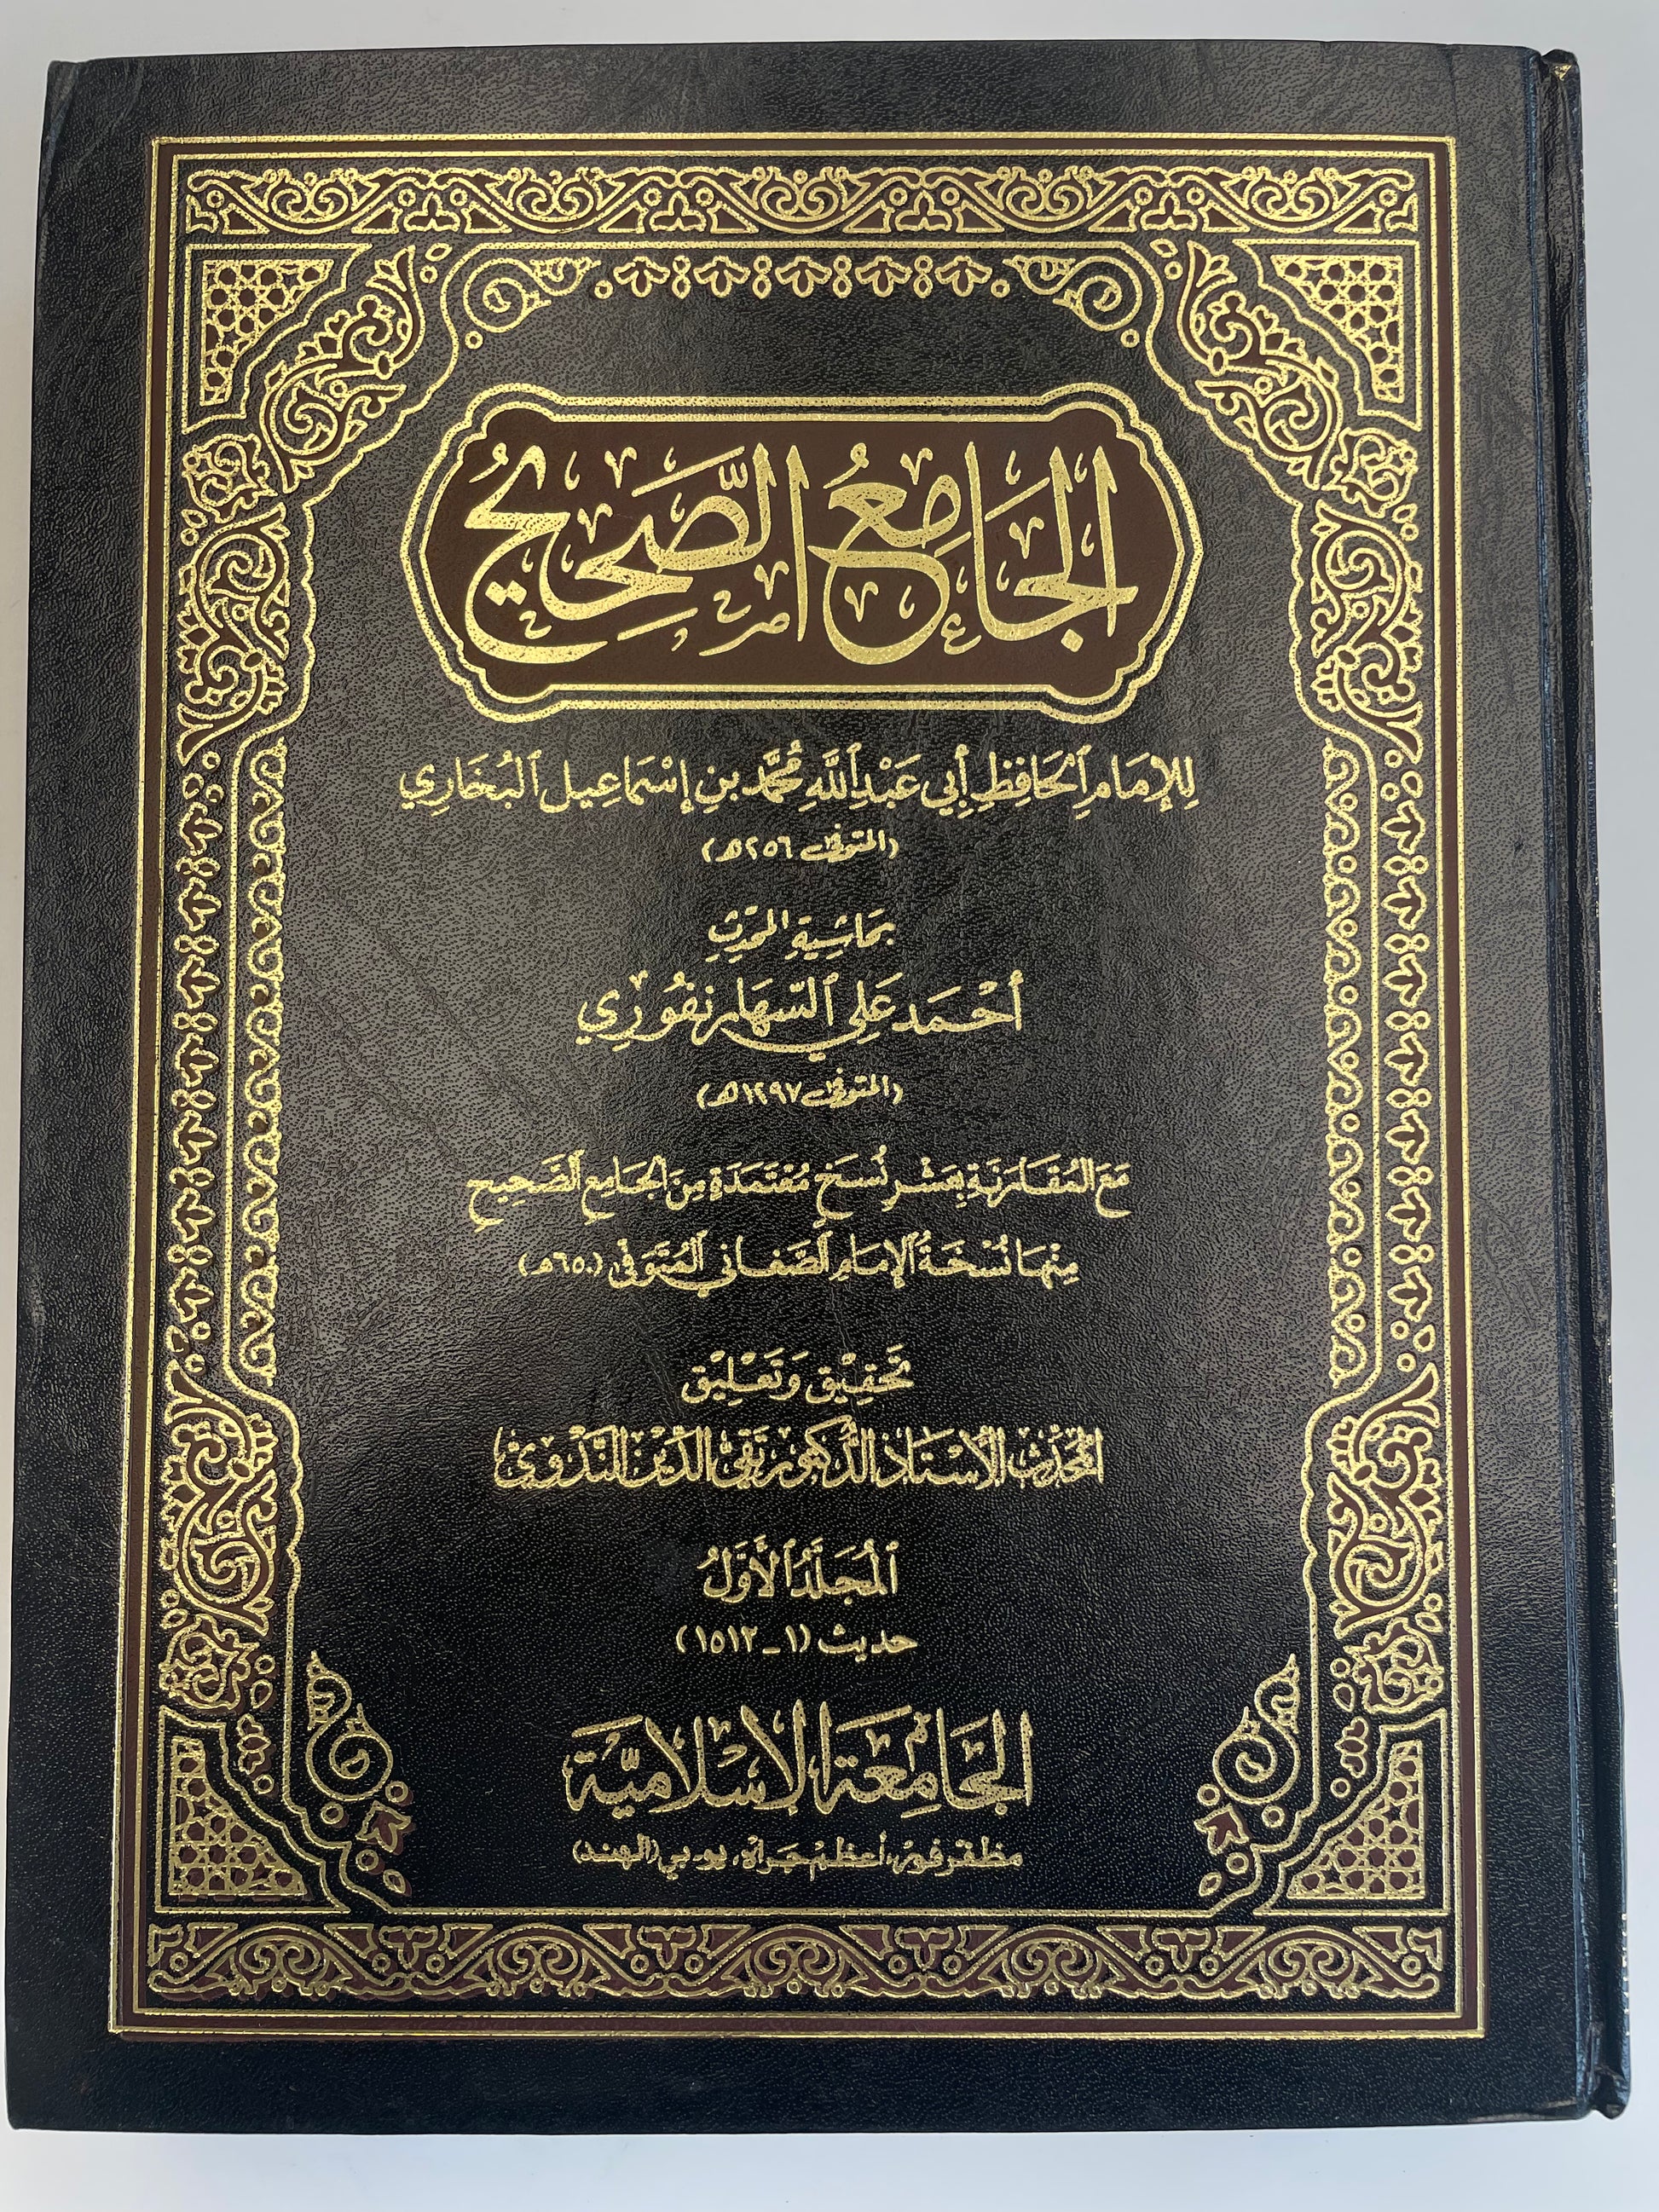 الجَامِعُ الصَّحِيحُ
لِلإِمَامِ الحَافِظِ أَبِي عَبْدِ اللَّهِ مُحَمَّد بنِ إِسْمَاعِيل البُخَارِي
(المتوفى ٢٥٦ھ)
بحَاشِيَةِ المُحَدِّثِ
أَحْمَد عَلي السَّهَارنفُورِي
(المتوفى ١٢٩٧ھ)
مَعَ المُقَارَنَةِ بِعَشْرِ نُسَخٍ مُعْتَمَدَةٍ مِنَ الجَامِعِ الصَّحِيحِ
مِنْهَا نُسْخَةُ الإِمَامِ الصَّغَانِي المُتَوَفى (٦٥٠ھ)
تَحْقِيْق وَتَعْلِيْق
المُحَدِّث الأُسْتَاذ الدُّكتور تَقِيّ الدِّين النَّدْوِيّ
المُجَلَّدُ الأَوَّلُ
حديث (١ - ١٥١٢)
الجَامِعَة الإِسْلَامِيَّة
مظفرفور، أعظم جراه، يو.بي (الهند)